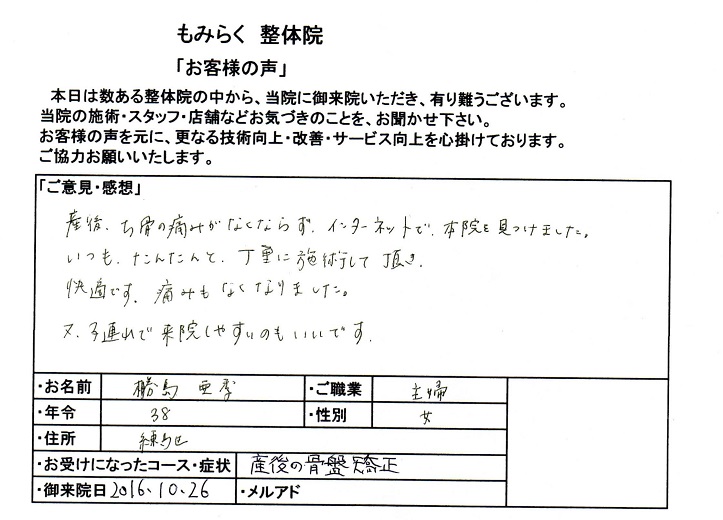 もみらく 整体院
「お客様の声」
本日は数ある整体院の中から、当院に御来院いただき、有り難うございます。
当院の施術・スタッフ・店舗などお気づきのことを、お聞かせ下さい。
お客様の声を元に、更なる技術向上・改善・サービス向上を心掛けております。
ご協力お願いいたします。
「ご意見・感想」
産後、ち骨の痛みがなくならず、インターネットで、本院を見つけました。
いつも、たんたんと、丁重に施術して頂き、
快適です。痛みもなくなりました。
又、子連れで来院しやすいのもいいです。
・お名前 勝島 亜季 ・ご職業 主婦
・年令 38 ・性別 女
・住所 練馬区
・お受けになったコース・症状 産後の骨盤矯正
・御来院日 2016.10.26 ・メルアド